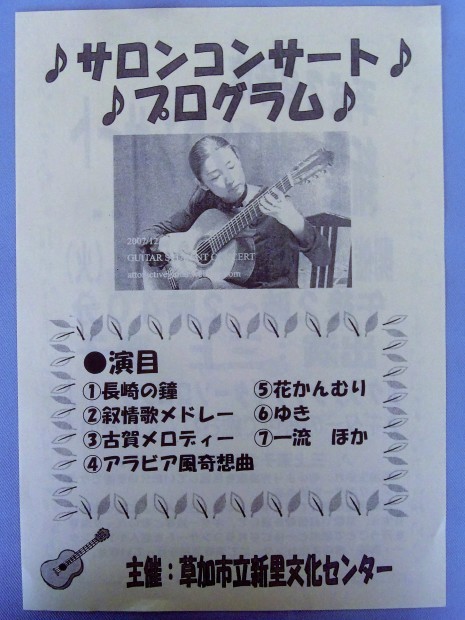 ♪サロンコンサート♪
♪プログラム♪
2007/12
GUITAR STUDENT CONCERT
●演目
①長崎の鐘
②叙情歌メドレー
③古賀メロディー
④アラビア風奇想曲
⑤花かんむり
⑥ゆき
⑦一流 ほか
主催：草加市立新里文化センター